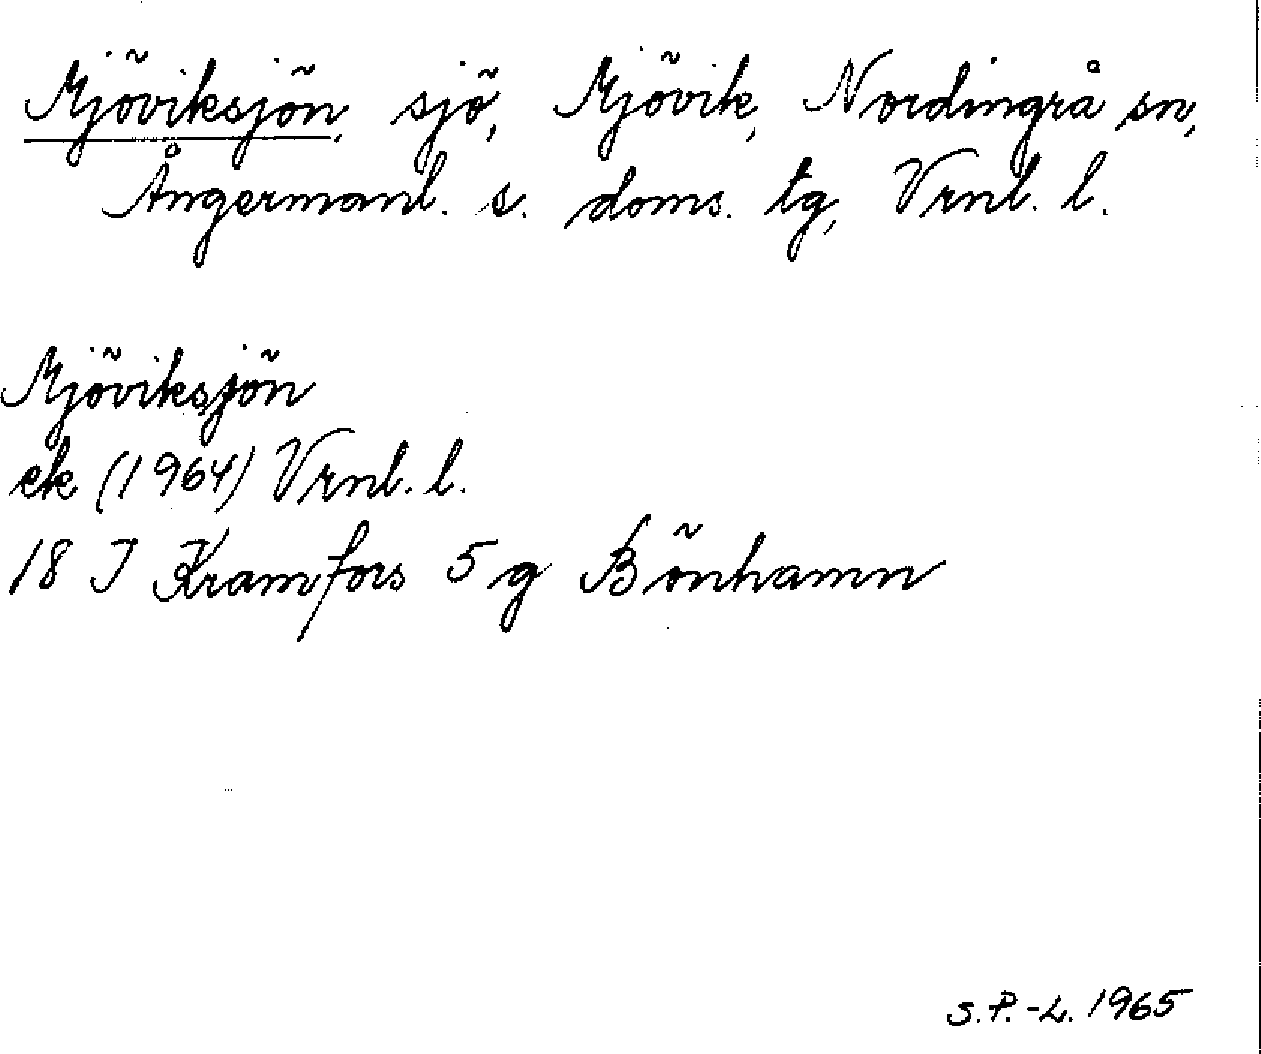 Mjöviksjön, sjö, Mjövik, Nordingrå sn,
Ångermanl. s. doms. tg, Vrnl. l.
Mjöviksjön
ek (1964) Vrnl. l.
18 J Kramfors 5 g Bönhamn
S.P.-L. 1965